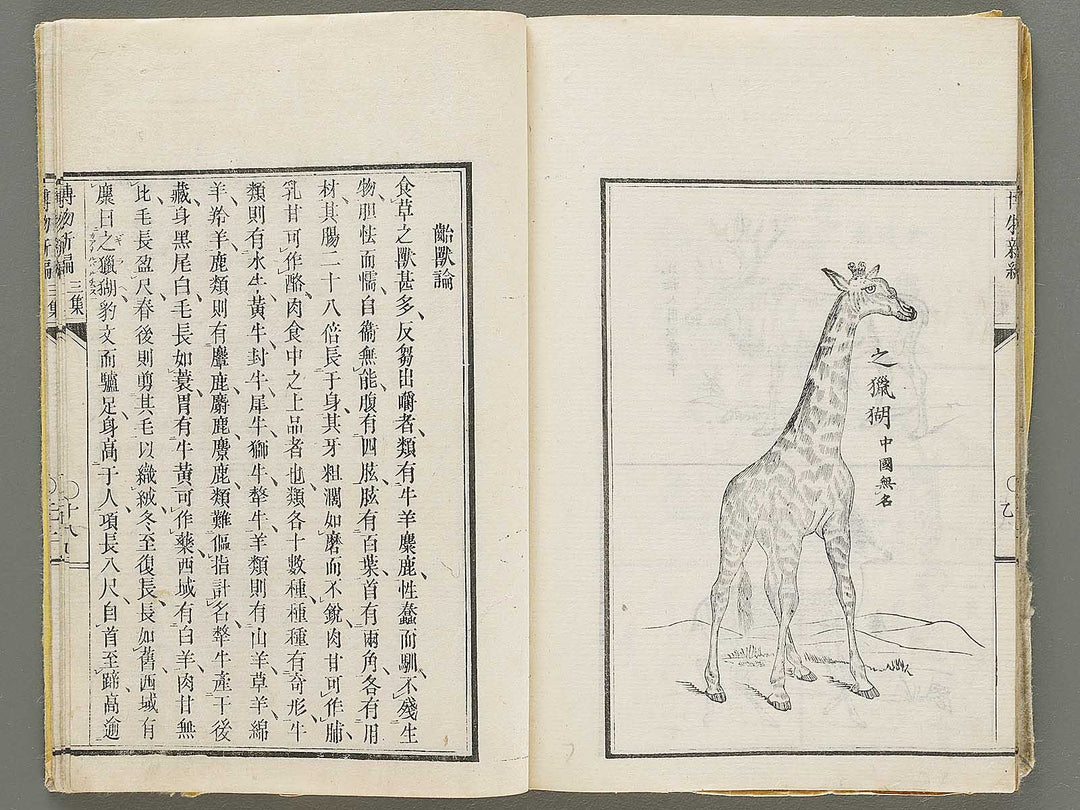 之獵猢 中國無名
齝獸論
食草之獸甚多反芻出嚼者類有牛羊麋鹿性蠢而馴不殘生
物胆怯而懦自衞無能腹有四胘胘有百葉首有兩角各有用
材其腸二十八倍長于身其牙粗濶如磨而不銳肉甘可作脯
乳甘可作酪肉食中之上品者也類各十數種種種有奇形牛
類則有水牛黃牛封牛犀牛獅牛犂牛羊類則有山羊草羊綿
羊羚羊鹿類則有麞鹿麝鹿麖鹿類難傴指計名犂牛產于後
藏身黑尾白毛長如蓑胃有牛黃可作藥西域有白羊肉甘無
比毛長盈尺春後則剪其毛以織絨冬至復長長如舊西域有
麋曰之獵猢豹文而驢足身高于人項長八尺自首至蹄高逾
博物新編 三集